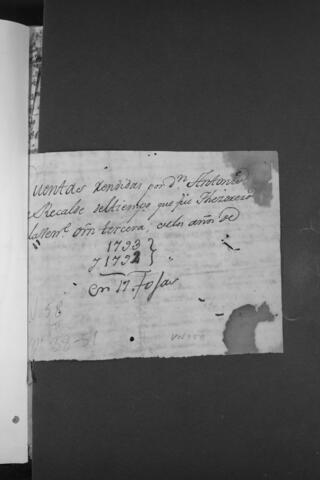 Cuentas Rendidas por Dn Antonio
Recalde del tiempo que fue Thezorero
la Vene. Orn tercera, en los años de
1793
y 1792
en 17 Fojas